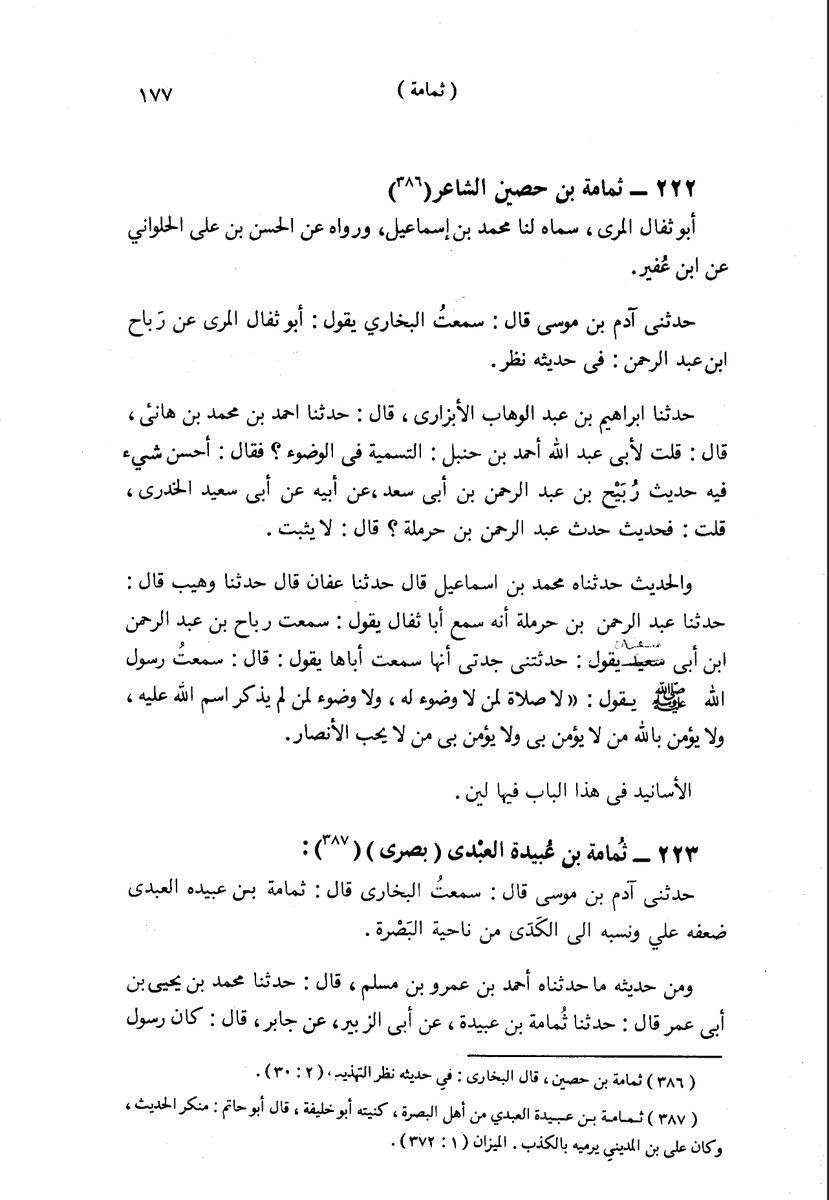 ( ثمامة ) ١٧٧
٢٢٢ ــ ثمامة بن حصين الشاعر(٣٨٦)
أبو ثفال المرى ، سماه لنا محمد بن إسماعيل، ورواه عن الحسن بن على الحلواني
عن ابن عُفير.
حدثنى آدم بن موسى قال : سمعتُ البخاري يقول : أبو ثفال المرى عن رَباح
ابن عبد الرحمن : فى حديثه نظر.
حدثنا ابراهيم بن عبد الوهاب الأبزارى ، قال : حدثنا احمد بن محمد بن هانئ ،
قال : قلت لأبى عبد الله أحمد بن حنبل : التسمية فى الوضوء ؟ فقال : أحسن شيء
فيه حديث رُبَيْح بن عبد الرحمن بن أبى سعد ،عن أبيه عن أبى سعيد الخدرى ،
قلت : فحديث حدث عبد الرحمن بن حرملة ؟ قال : لا يثبت .
والحديث حدثناه محمد بن اسماعيل قال حدثنا عفان قال حدثنا وهيب قال :
حدثنا عبد الرحمن بن حرملة أنه سمع أبا ثفال يقول : سمعت رباح بن عبد الرحمن
سفيان
ابن أبى سعيد يقول : حدثتنى جدتى أنها سمعت أباها يقول : قال : سمعتُ رسول
الله ﷺ يقول : «لا صلاة لمن لا وضوء له ، ولا وضوء لمن لم يذكر اسم الله عليه ،
ولا يؤمن بالله من لا يؤمن بى ولا يؤمن بى من لا يحب الأنصار.
الأسانيد فى هذا الباب فيها لين .
٢٢٣ ــ ثُمامة بن عُبيدة العبْدى ( بصرى ) (٣٨٧) :
حدثنى آدم بن موسى قال : سمعتُ البخارى قال : ثمامة بن عبيده العبدى
ضعفه علي ونسبه الى الكَدَى من ناحية البَصْرة .
ومن حديثه ما حدثناه أحمد بن عمرو بن مسلم ، قال : حدثنا محمد بن يحيى بن
أبى عمر قال : حدثنا ثُمامة بن عبيدة ، عن أبى الزبير، عن جابر ، قال : كان رسول
( ٣٨٦ ) ثمامة بن حصين ، قال البخارى : في حديثه نظر التهذيب ، ( ٢ : ٣٠ ) .
( ٣٨٧ ) ثمامة بن عبيدة العبدي من أهل البصرة ، كنيته أبو خليفة ، قال أبو حاتم : منكر الحديث ،
وكان على بن المديني يرميه بالكذب . الميزان ( ١ : ٣٧٢ ) .